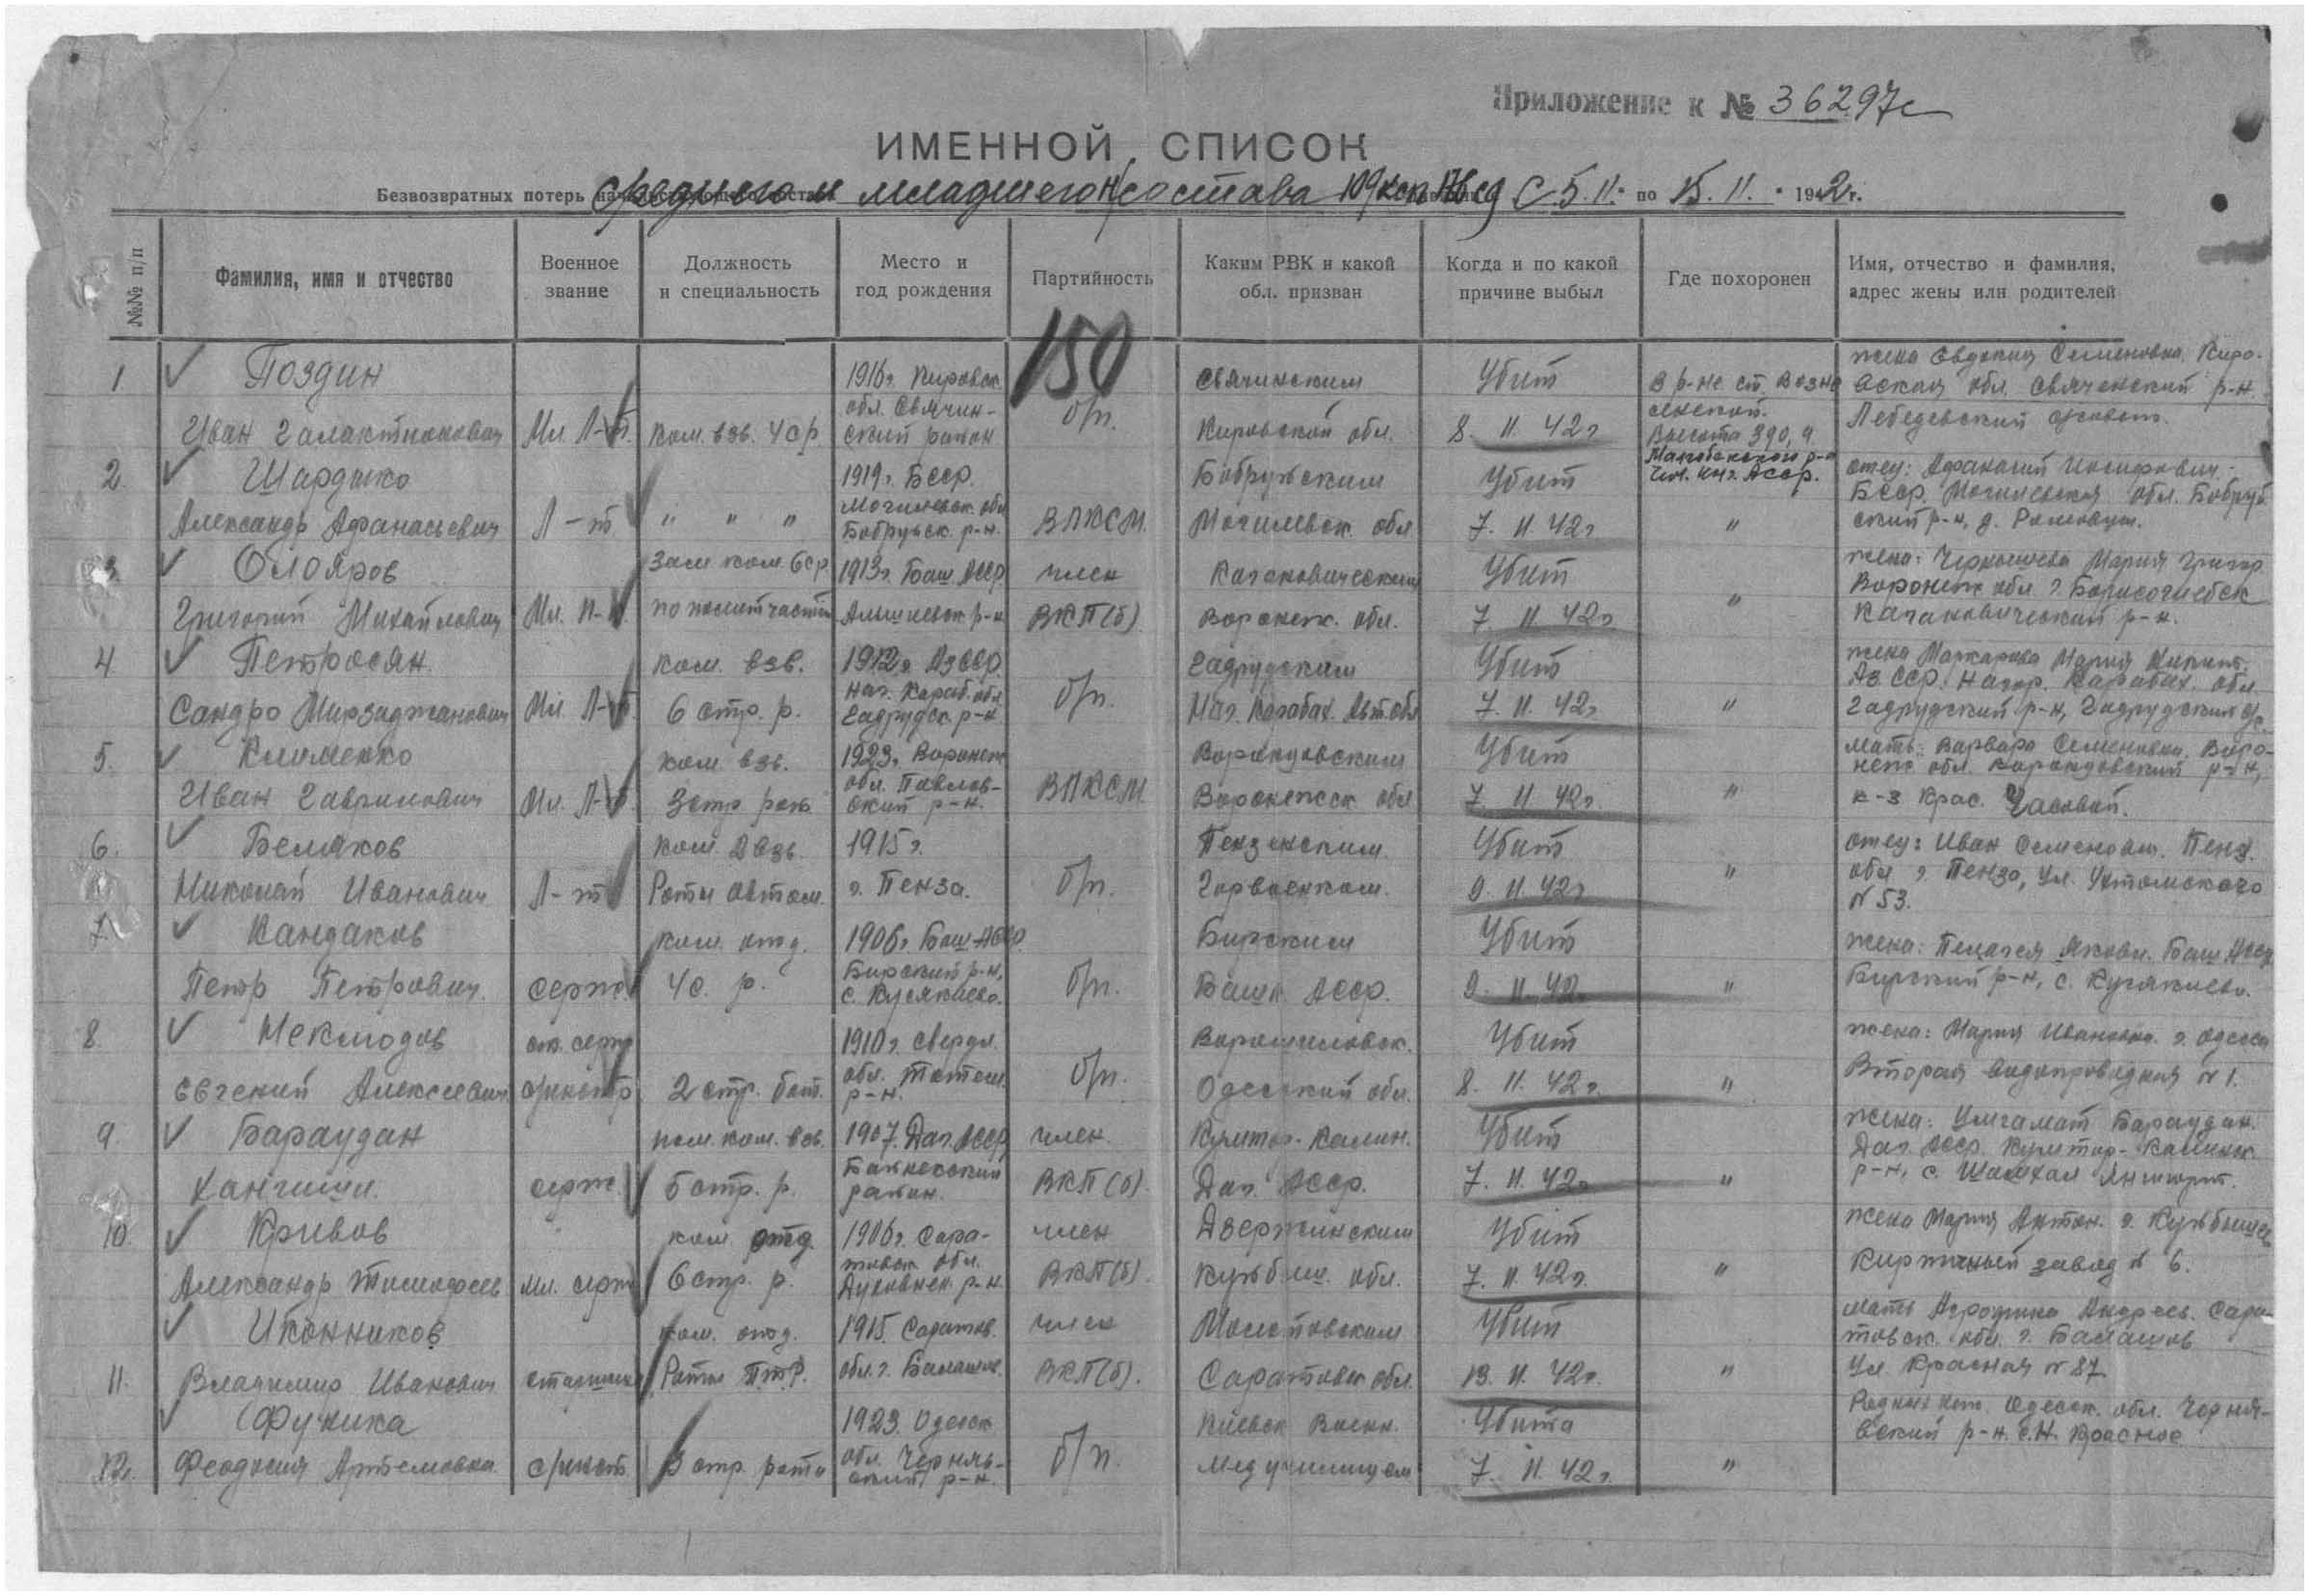 Приложение к № 36297с
ИМЕННОЙ СПИСОК
Безвозвратных потерь среднего и младшего н/состава с 5.11. по 15.11. 1942 г.
№№ п/п
Фамилия, имя и отчество
Военное звание
Должность и специальность
Место и год рождения
Партийность
Каким РВК и какой обл. призван
Когда и по какой причине выбыл
Где похоронен
Имя, отчество и фамилия, адрес жены или родителей
150
1 Поздин 1916г. Кировск. Свячинским Убит В р-не ст. Возне жена Евдокия Семеновна. Киро-
обл. Свячин- б/п. сенской. вская обл. Свяченский р-н.
Иван Галактионович Мл. Л-т. Ком. взв. 4 ср. ский район Кировской обл. 8. 11. 42г Высота 390,9. Лебедевский с/совет.
2. Шардыко 1919г. БССР. Бобруйским Убит р-н отец: Афанасий Иосифович.
Чеч. Инг. АССР. БССР, Могилевская обл. Бобруй
Александр Афанасьевич Л-т " " " Могилевск. обл Бобруйск. р-н. ВЛКСМ. Могилевск. обл 7. 11. 42г " ский р-н, д.
3. Олояров Зам ком. 6ср 1913г. Баш. АССР член Кагановическим Убит жена: Чернышева Мария Григор.
Воронеж обл г. Борисоглебск
Григорий Михайлович Мл. П-к. по политчасти р-н ВКП(б) Воронеж. обл. 7. 11. 42г " Кагановический р-н.
4 Петросян. ком. взв. 1912г. АзССР. Гадрудским Убит жена Маркарова Мария
Наг. Караб. обл Аз ССР. Нагор. Карабах. обл.
Сандро Мирзаджанович Мл. Л-т. 6 стр. р. Гадрудск р-н б/п. Наг. Карабах. Авт. обл 7. 11. 42г " Гадрудский р-н, Гадрудский с/с.
5. Клименко ком. взв. 1923г. Воронеж Воронцовским Убит мать: Варвара Семеновна. Воро-
обл. Павлов- неж обл. Воронцовский р-н,
Иван Гаврилович Мл. Л-т. 3 стр. рот ский р-н. ВЛКСМ Воронежск обл 7. 11 42г. " к-з Крас. Часовой.
6. Беляков ком. 2 взв. 1915г. Пензенским Убит отец: Иван Семенович. Пенз.
Николай Иванович Л-т Роты автом. г. Пенза. б/п. Горвоенком. 9. 11. 42г " обл г. Пенза, ул. Ухтомского
№ 53.
7. Кандаков ком. отд. 1906г. Баш. АССР. Бирским Убит жена: Пелагея Яковл. Баш. АССР
Петр Петрович. серж. 4 с. р. Бирский р-н, б/п. Башк АССР. 9. 11. 42 " Бирский р-н, с.
8. Неклюдов ст. серж 1910г. Свердл. Ворошиловск. Убит жена: Мария Ивановна. г. Одесса
Евгений Алексеевич 2 стр. бат. обл. р-н. б/п. Одесской обл. 8. 11. 42г. " Вторая водопроводная № 1.
9. Бараудан пом. ком. взв. 1907. Даг. АССР член. Кумтор-Калин. Убит жена: Умгамат Бараудан.
район. Даг. АССР. Кумтор-Калинск
серж. 5 стр. р. ВКП(б). Даг. АССР. 7. 11. 42г " р-н, с. Шамхал Янгиюрт.
10. Кривов ком. отд. 1906г. Сара- член Дзержинским Убит жена Мария Антон. г. Куйбышев
товск обл.
Александр Тимофеев мл. серж 6 стр. р. Духовнск. р-н. ВКП(б). Куйбыш. обл. 7. 11. 42г. " Кирпичный завод № 6.
Иконников ком. отд. 1915. Саратов. член Молотовским Убит мать Агрофина Андреев. Сара-
товск. обл. г. Балашов
11. Владимир Иванович старшина Роты П.Т.Р. обл. г. Балашов. ВКП(б). Саратовск обл. 13. 11. 42г. " ул. Красная № 87
Фуника 1923. Одесск Киевск Воен. Убита Родных нет. Одесск. обл. Черня-
обл. Черняв- вский р-н. с. Н. Красное
12. Феодосия Артемовна 3 стр. роты ский р-н. б/п. мед училищем 7. 11. 42г. "